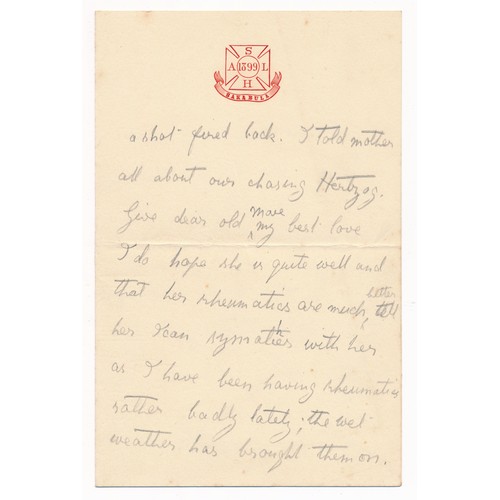 S
A 1399 L
H
BARABULL
a shot fired back. I told mother
all about our chasing Hertzog.
Give dear old mave my best love
I do hope she is quite well and
that her rheumatics are much better, tell
her I can symathise with her
as I have been having rheumatics
rather badly lately; the wet
weather has brought them on.